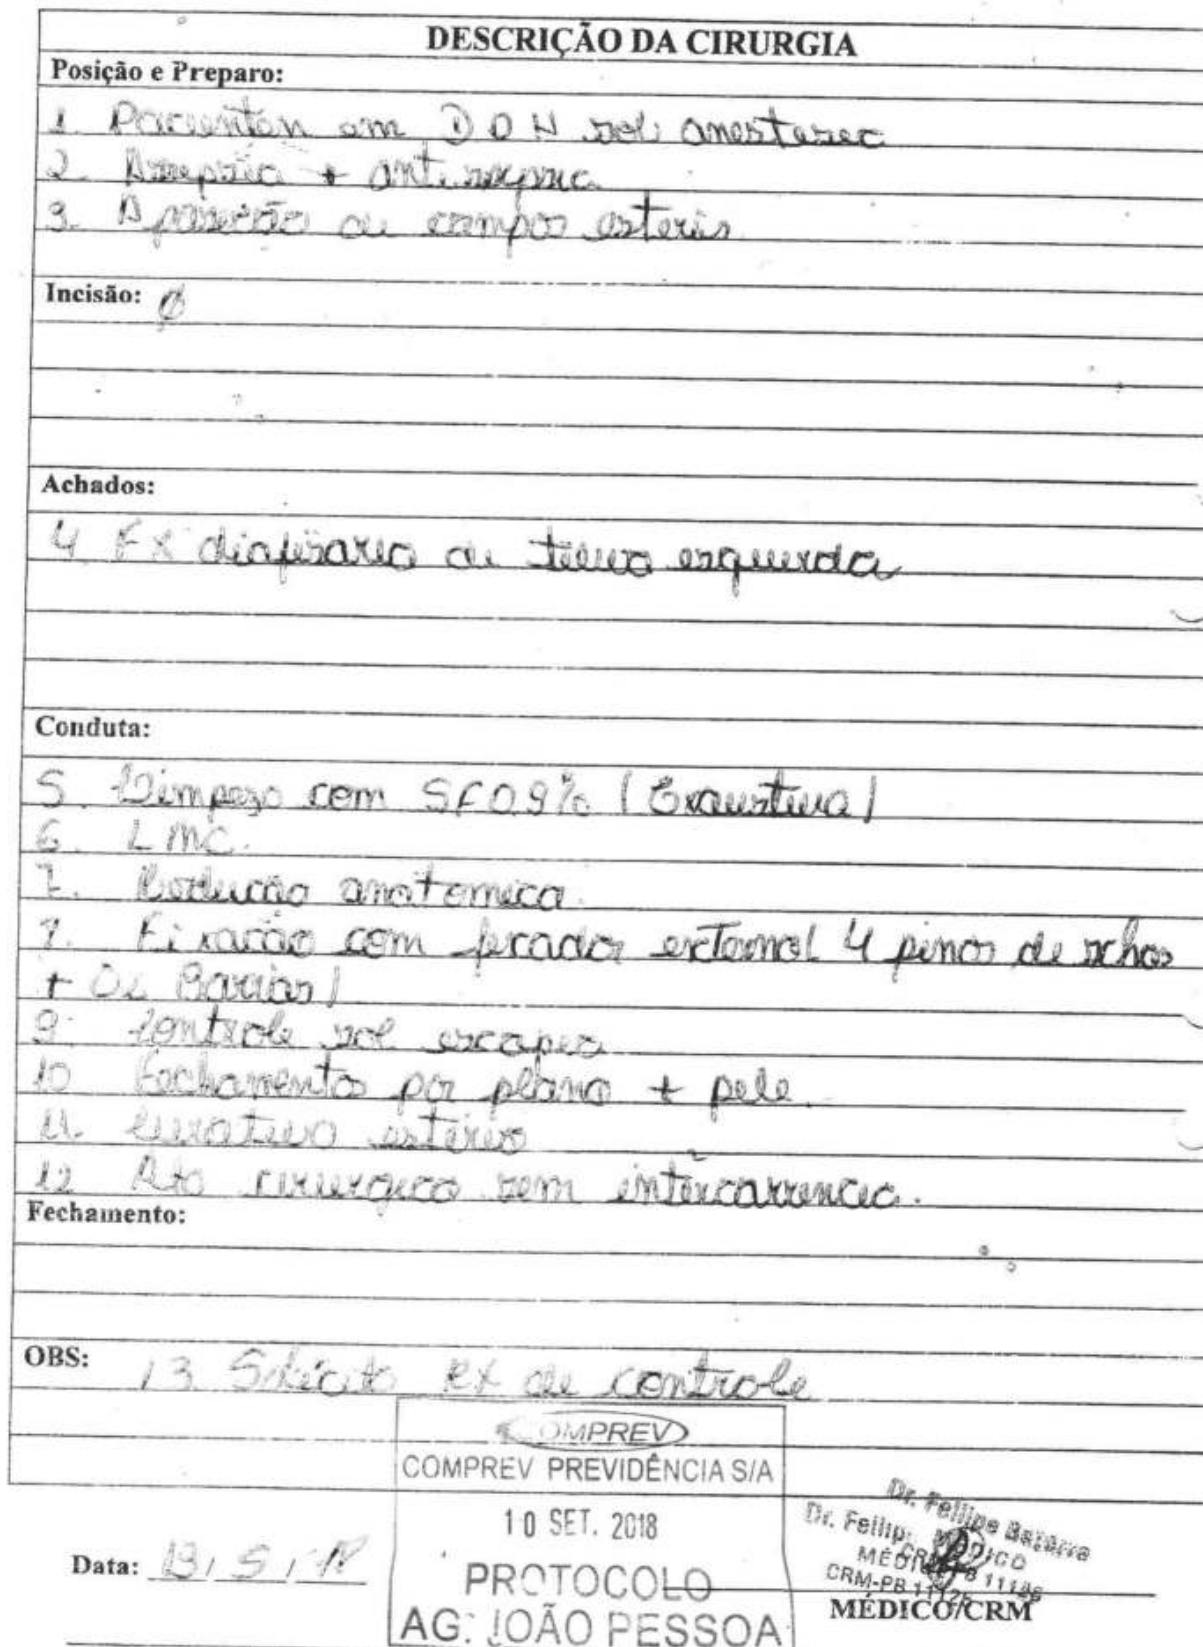 DESCRIÇÃO DA CIRURGIA
Posição e Preparo:
1. em D D H sob anestesec
2. Assepsia + antissepsia
3. Aposição de campos estéreis
Incisão: Ø
Achados:
4 FX diafisaria de tibia esquerda
Conduta:
5. Limpeza com SF 0.9% (Exaustiva)
6. LMC.
7. Redução anatomica.
Fixação com fixador external 4 pinos de
+ Barras)
9. Controle sob escopia
10 Fechamento por plano + pele.
11 Curativo
12 Ato cirurgico sem intercorrencia.
Fechamento:
OBS: 13 Solicito RX de controle
COMPREV
COMPREV PREVIDÊNCIA S/A
10 SET. 2018
PROTOCOLO
AG. JOÃO PESSOA
Data: 13 / 5 /
Dr. Fellipe
MÉDICO
CRM-PB
MÉDICO/CRM